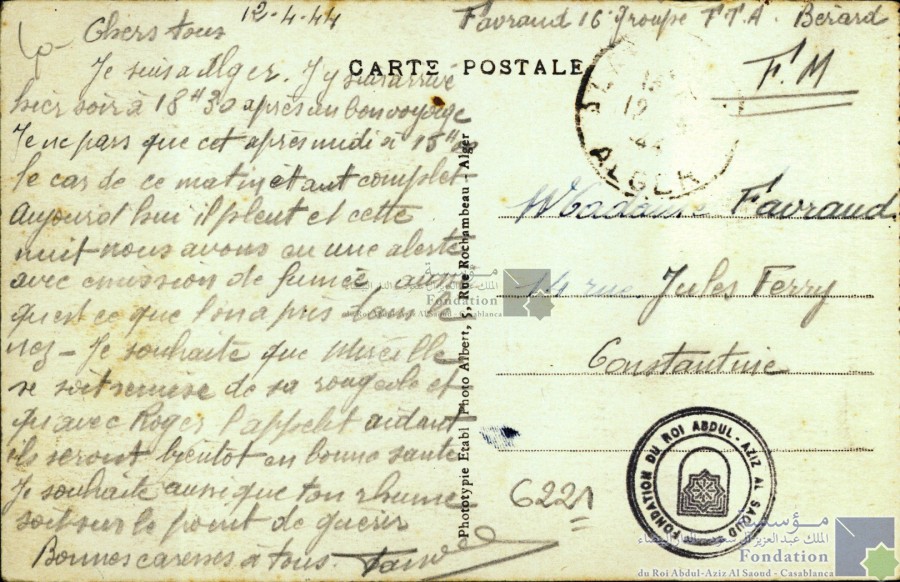 12-4-44
Favraud 16e groupe F.T.A. Bérard
Chers tous
Je suis a Alger. J'y suis arrivé
hier soir à 18H30 après un bon voyage
Je ne pars que cet après midi à 15H
le car de ce matin étant complet
Aujourd'hui il pleut et cette
nuit nous avons eu une alerte
avec émission de fumée,
qu'est ce que l'on a pris
nez - Je souhaite que Mireille
se soit remise de sa rougeole et
qu'avec Roger l'appétit aidant
ils seront bientôt en bonne santé
Je souhaite aussi que ton rhume
soit sur le point de guérir
Bonnes caresses à tous.
CARTE POSTALE
F.M
12
44
ALGER
Madame Favraud
14 rue Jules Ferry
Constantine
Phototypie Etabl Photo Albert, 5, Rue Rochambeau - Alger
6221
FONDATION DU ROI ABDUL-AZIZ AL SAOUD
مؤسسة
الملك عبد العزيز آل سعود الدار البيضاء
Fondation
du Roi Abdul-Aziz Al Saoud - Casablanca
مؤسسة
الملك عبد العزيز آل سعود الدار البيضاء
Fondation
du Roi Abdul-Aziz Al Saoud - Casablanca